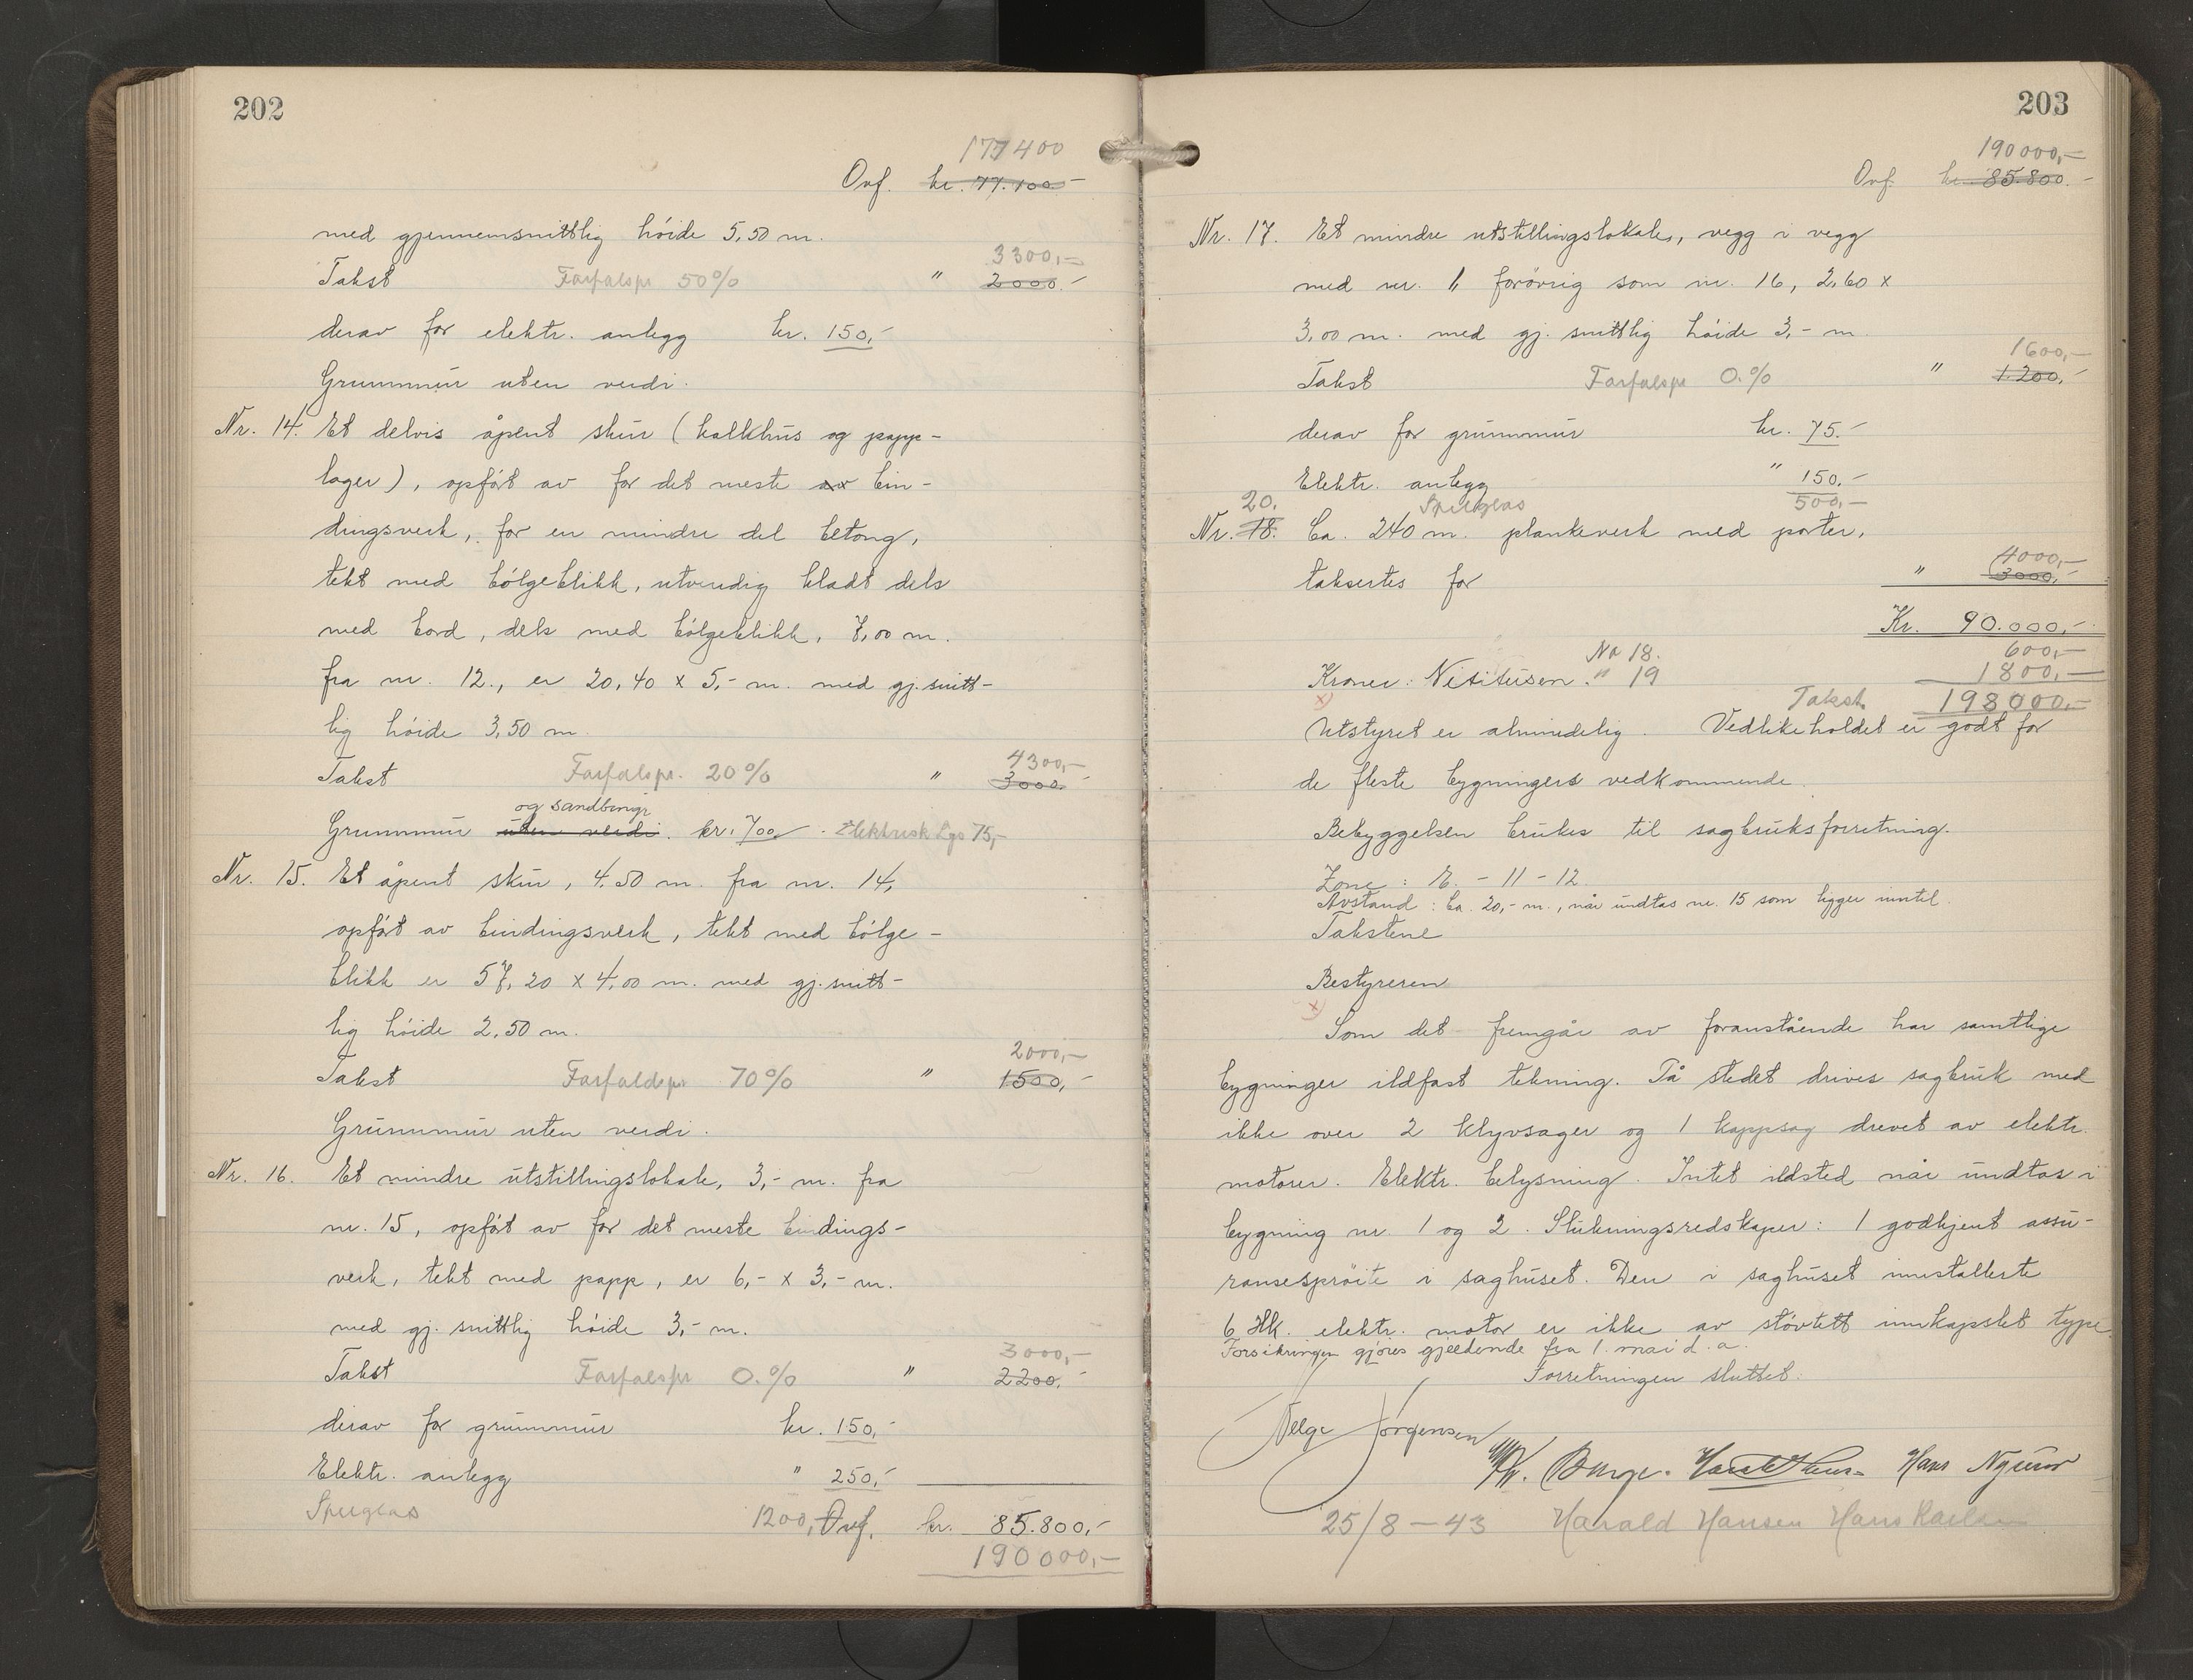 202
177400
Ovf. kr. 77.100.-
med gjennemsnittlig höide 5,50 m.
3300,-
Takst Forfalspr 50% " 2000.-
derav for elektr. anlegg kr. 150,-
Grunnmur uten verdi.
Nr. 14. Et delvis åpent skur (kalkhus og papp-
lager), opfört av for det meste av bin-
dingsverk, for en mindre del betong,
tekt med bölgeblikk, utvendig kledt dels
med bord, dels med bölgeblikk, 7,00 m.
fra nr. 12., er 20,40 x 5,- m. med gj. snitt-
lig höide 3,50 m.
4300,-
Takst Forfalspr. 20% " 3000.-
og sandbinge
Grunnmur uten verdi. kr. 700,- Elektrisk Lys 75,-
Nr. 15. Et åpent skur, 4.50 m. fra nr. 14,
opfört av bindingsverk, tekt med bölge-
blikk er 57,20 x 4,00 m. med gj. snitt-
lig höide 2.50 m.
2000,-
Takst Forfaldspr 70% " 1500,-
Grunnmur uten verdi.
Nr. 16. Et mindre utstillingslokale, 3,- m. fra
nr. 15, opfört av for det meste bindings-
verk, tekt med papp, er 6,- x 3,- m.
med gj. snittlig höide 3,- m.
3000,-
Takst Forfalspr 0.% " 2200,-
derav for grunnmur kr. 150,-
Elektr. anlegg " 250,-
Speilglas 1200,- Ovf. kr. 85.800,-
190000,-
203
190000,-
Ovf. kr. 85.800.-
Nr. 17. Et mindre utstillingslokale, vegg i vegg
med nr. forövrig som nr. 16, 2,60 x
3,00 m. med gj. snittlig höide 3,- m.
1600,-
Takst Forfalspr 0.% " 1.200,-
derav for grunnmur kr. 75.-
Elektr. anlegg " 150.-
20. Speilglas 500,-
Nr. 18. Ca. 240 m. plankeverk med porter,
4000,-
taksertes for " 3000,-
Kr. 90.000,-
No 18. 600,-
Kroner: Nititusen. " 19 1800,-
x) Takst 198000,-
Utstyret er almindelig. Vedlikeholdet er godt for
de fleste bygningers vedkommende.
Bebyggelsen brukes til sagbruksforretning.
Zone: E. - 11 - 12.
Avstand: Ca. 20,- m., når undtas nr. 15 som ligger inntil.
Takstene
Bestyreren
x)
Som det fremgår av foranstående har samtlige
bygninger ildfast tekning. På stedet drives sagbruk med
ikke over 2 klyvsager og 1 kappsag drevet av elektr.
motorer. Elektr. belysning. Intet ildsted når undtas i
bygning nr. 1 og 2. Slukningsredskaper: 1 godkjent assu-
ransespröite i saghuset. Den i saghuset innstallerte
6 Hk. elektr. motor er ikke av stövtett innkapslet type.
Forsikringen gjöres gjeldende fra 1. mai d. a.
Forretningen sluttet.
Helge Jörgensen Hans
25/8-43 Harald Hansen Hans Karlsen